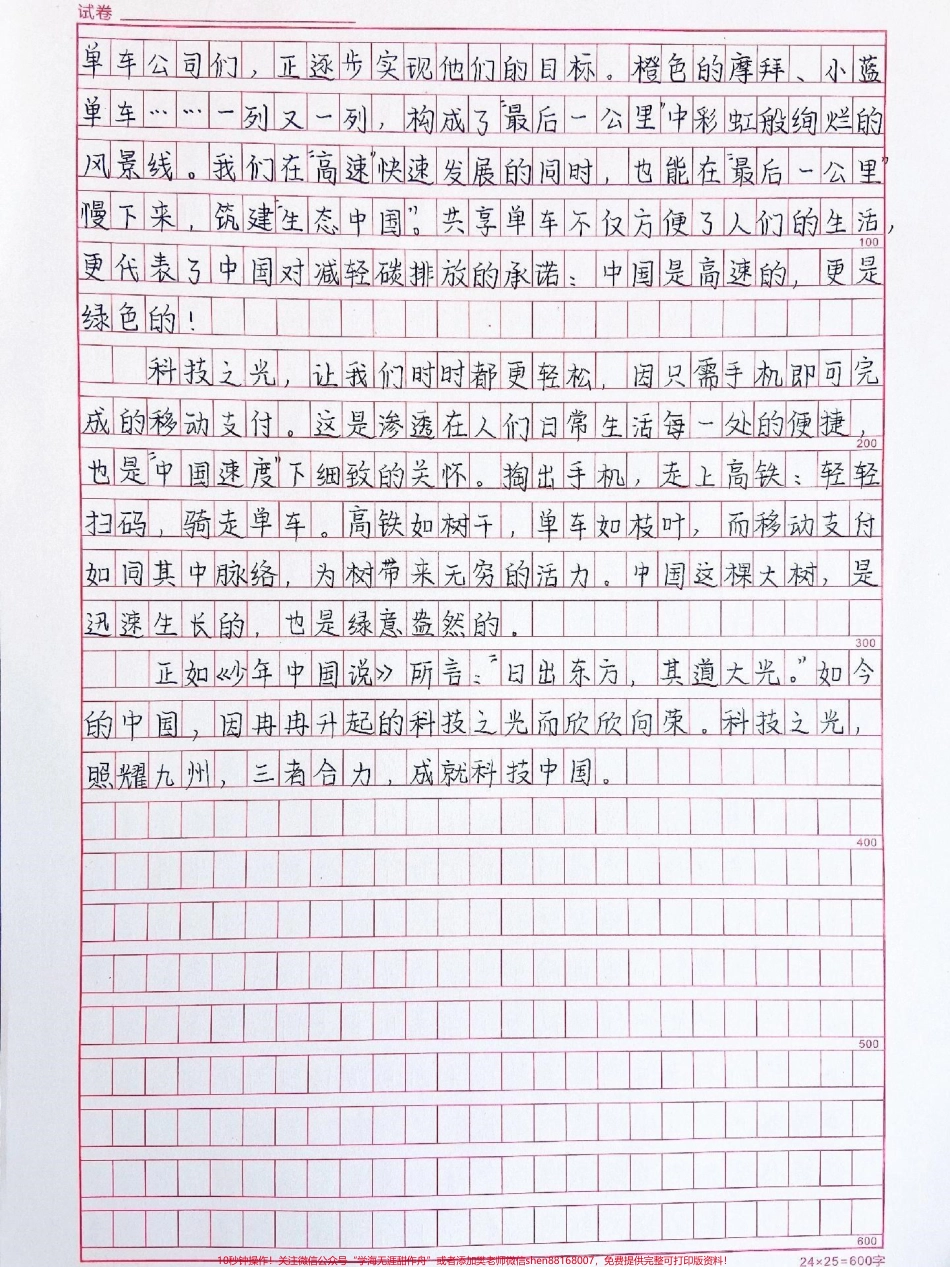 试卷
单车公司们，正逐步实现他们的目标。橙色的摩拜、小蓝
单车……一列又一列，构成了“最后一公里”中彩虹般绚烂的
风景线。我们在“高速”快速发展的同时，也能在“最后一公里”
慢下来，筑建“生态中国”。共享单车不仅方便了人们的生活，
100
更代表了中国对减轻碳排放的承诺：中国是高速的，更是
绿色的！
科技之光，让我们时时都更轻松，因只需手机即可完
成的移动支付。这是渗透在人们日常生活每一处的便捷，
200
也是“中国速度”下细致的关怀。掏出手机，走上高铁：轻轻
扫码，骑走单车。高铁如树干，单车如枝叶，而移动支付
如同其中脉络，为树带来无穷的活力。中国这棵大树，是
迅速生长的，也是绿意盎然的。
300
正如《少年中国说》所言：“日出东方，其道大光。”如今
的中国，因冉冉升起的科技之光而欣欣向荣。科技之光，
照耀九州，三者合力，成就科技中国。
400
500
600
10秒钟操作！关注微信公众号“学海无涯甜作舟”或者添加樊老师微信shen88168007，免费提供完整可打印版资料！
24×25=600字